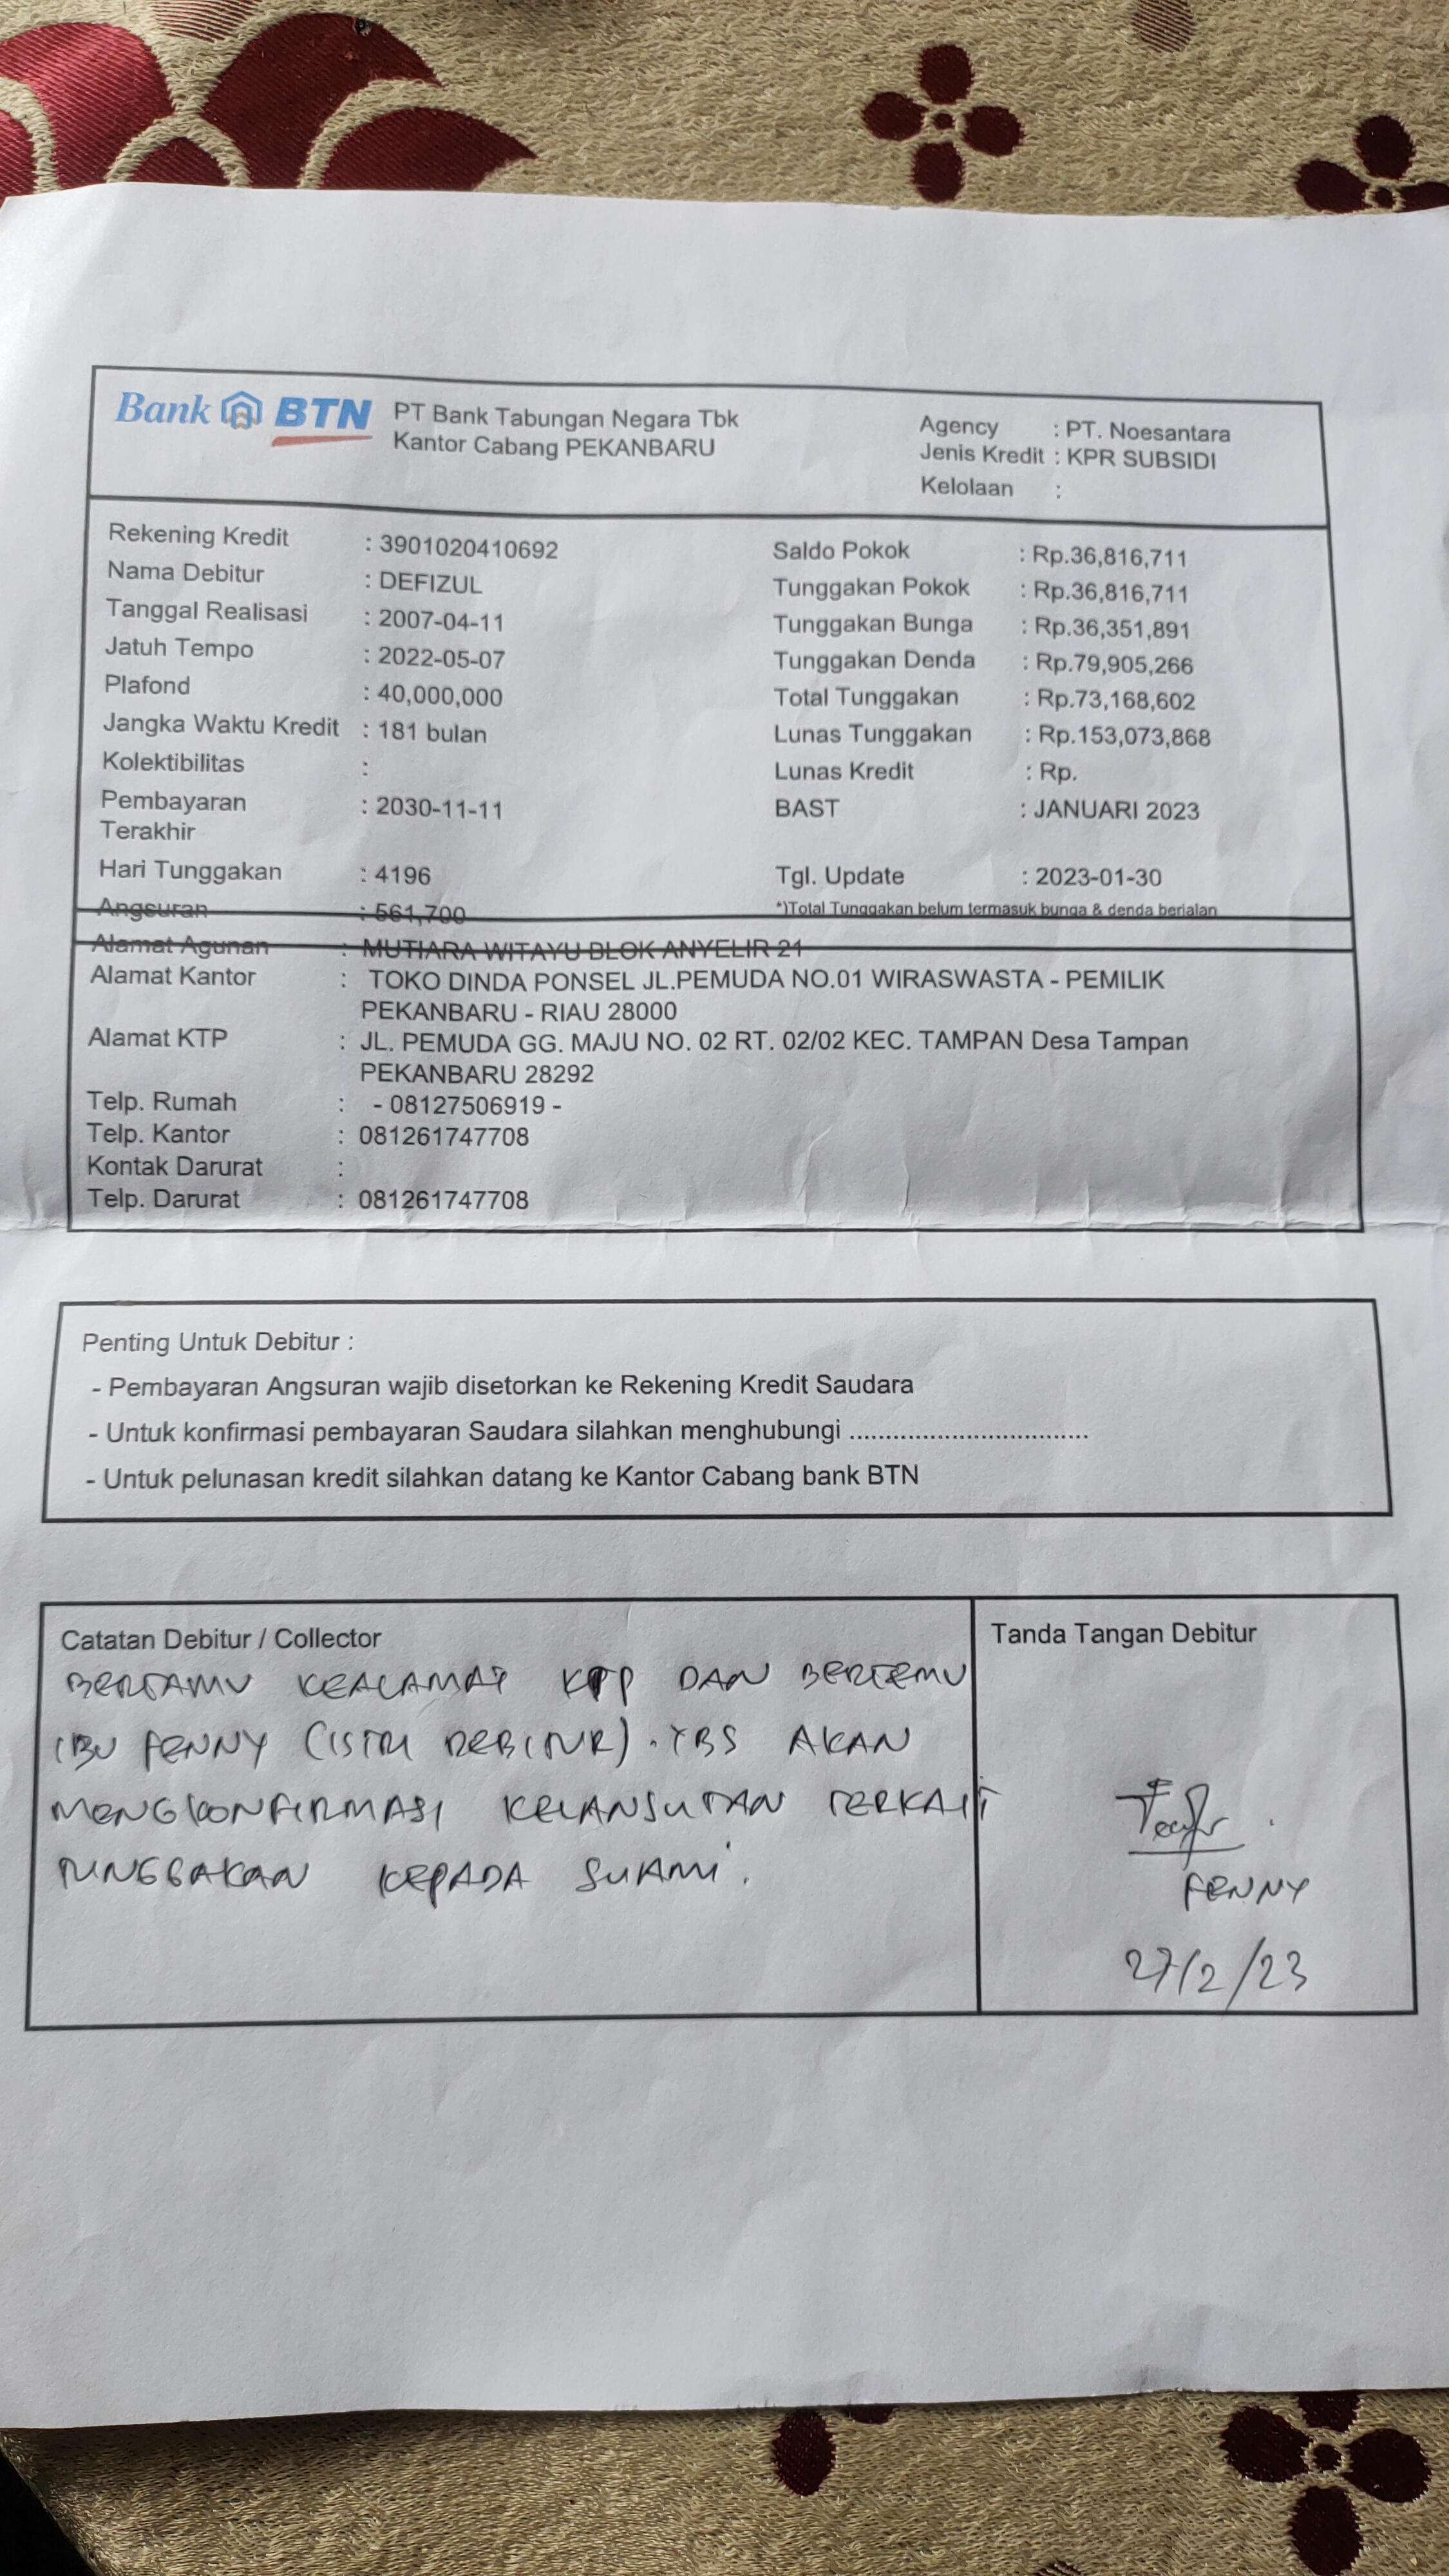 Bank BTN
PT Bank Tabungan Negara Tbk
Kantor Cabang PEKANBARU
Agency : PT. Noesantara
Jenis Kredit : KPR SUBSIDI
Kelolaan :
Rekening Kredit : 3901020410692
Nama Debitur : DEFIZUL
Tanggal Realisasi : 2007-04-11
Jatuh Tempo : 2022-05-07
Plafond : 40,000,000
Jangka Waktu Kredit : 181 bulan
Kolektibilitas :
Pembayaran : 2030-11-11
Terakhir
Hari Tunggakan : 4196
Angsuran : 561,700
Saldo Pokok : Rp.36,816,711
Tunggakan Pokok : Rp.36,816,711
Tunggakan Bunga : Rp.36,351,891
Tunggakan Denda : Rp.79,905,266
Total Tunggakan : Rp.73,168,602
Lunas Tunggakan : Rp.153,073,868
Lunas Kredit : Rp.
BAST : JANUARI 2023
Tgl. Update : 2023-01-30
*)Total Tunggakan belum termasuk bunga & denda berjalan
Alamat Agunan : MUTIARA WITAYU BLOK ANYELIR 21
Alamat Kantor : TOKO DINDA PONSEL JL.PEMUDA NO.01 WIRASWASTA - PEMILIK
PEKANBARU - RIAU 28000
Alamat KTP : JL. PEMUDA GG. MAJU NO. 02 RT. 02/02 KEC. TAMPAN Desa Tampan
PEKANBARU 28292
Telp. Rumah : - 08127506919 -
Telp. Kantor : 081261747708
Kontak Darurat :
Telp. Darurat : 081261747708
Penting Untuk Debitur :
- Pembayaran Angsuran wajib disetorkan ke Rekening Kredit Saudara
- Untuk konfirmasi pembayaran Saudara silahkan menghubungi ................................
- Untuk pelunasan kredit silahkan datang ke Kantor Cabang bank BTN
Catatan Debitur / Collector
BERTAMU KEALAMAT KTP DAN BERTEMU
IBU FENNY (ISTRI DEBITUR). YBS AKAN
MENGKONFIRMASI KELANJUTAN TERKAIT
TUNGGAKAN KEPADA SUAMI.
Tanda Tangan Debitur
FENNY
27/2/23